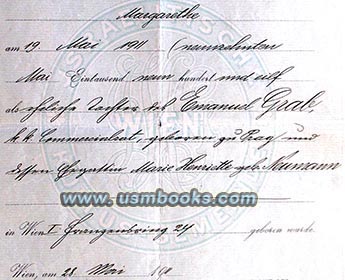 Margarethe
am 19 Mai 1911 (neunzehnten
Mai Eintausend neun hundert und eilf
als eheliche Tochter des Emanuel Grab,
k. k. Commercialrat, geboren zu Prag und
dessen Ehegattin Marie Henriette geb. Neumann
www.usmbooks.com
in Wien I Franzensring 24 geboren wurde.
Wien, am 28. Mai 191